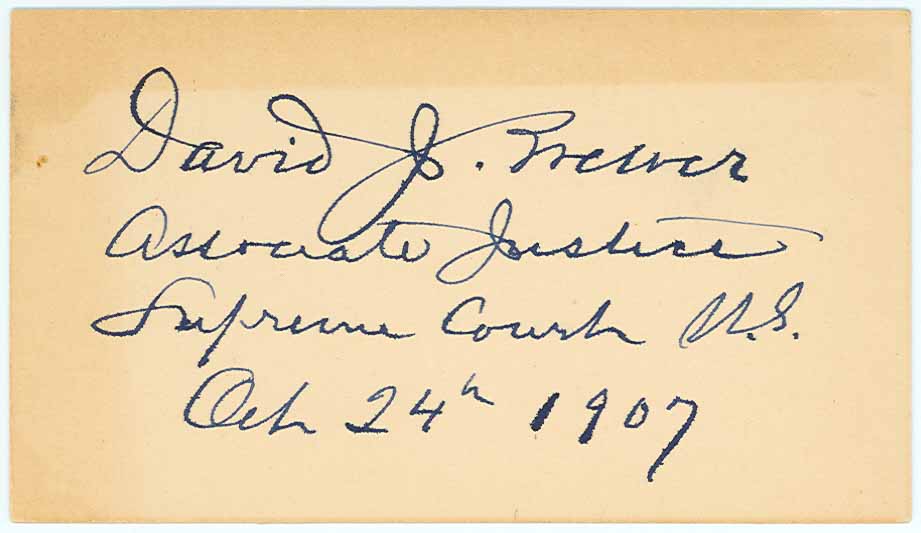 David J. Brewer
Associate Justice
Supreme Court U.S.
Oct 24th 1907